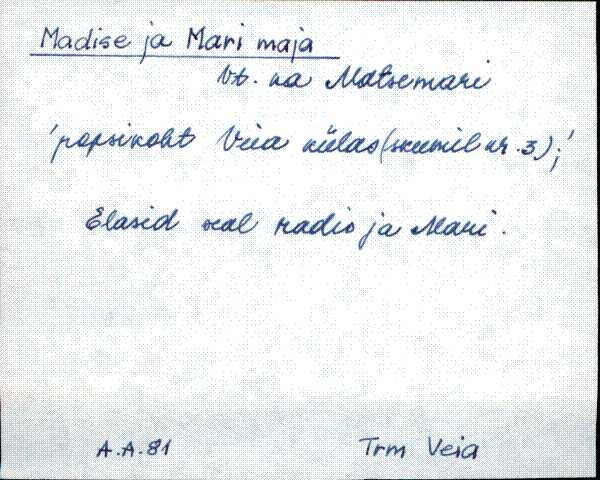 Madise ja Mari maja
Vt. ka Matsemari
'popsikoht Veia külas (skeemil nr. 3);'
Elasid seal Madis ja Mari.
A.A.81 Trm Veia